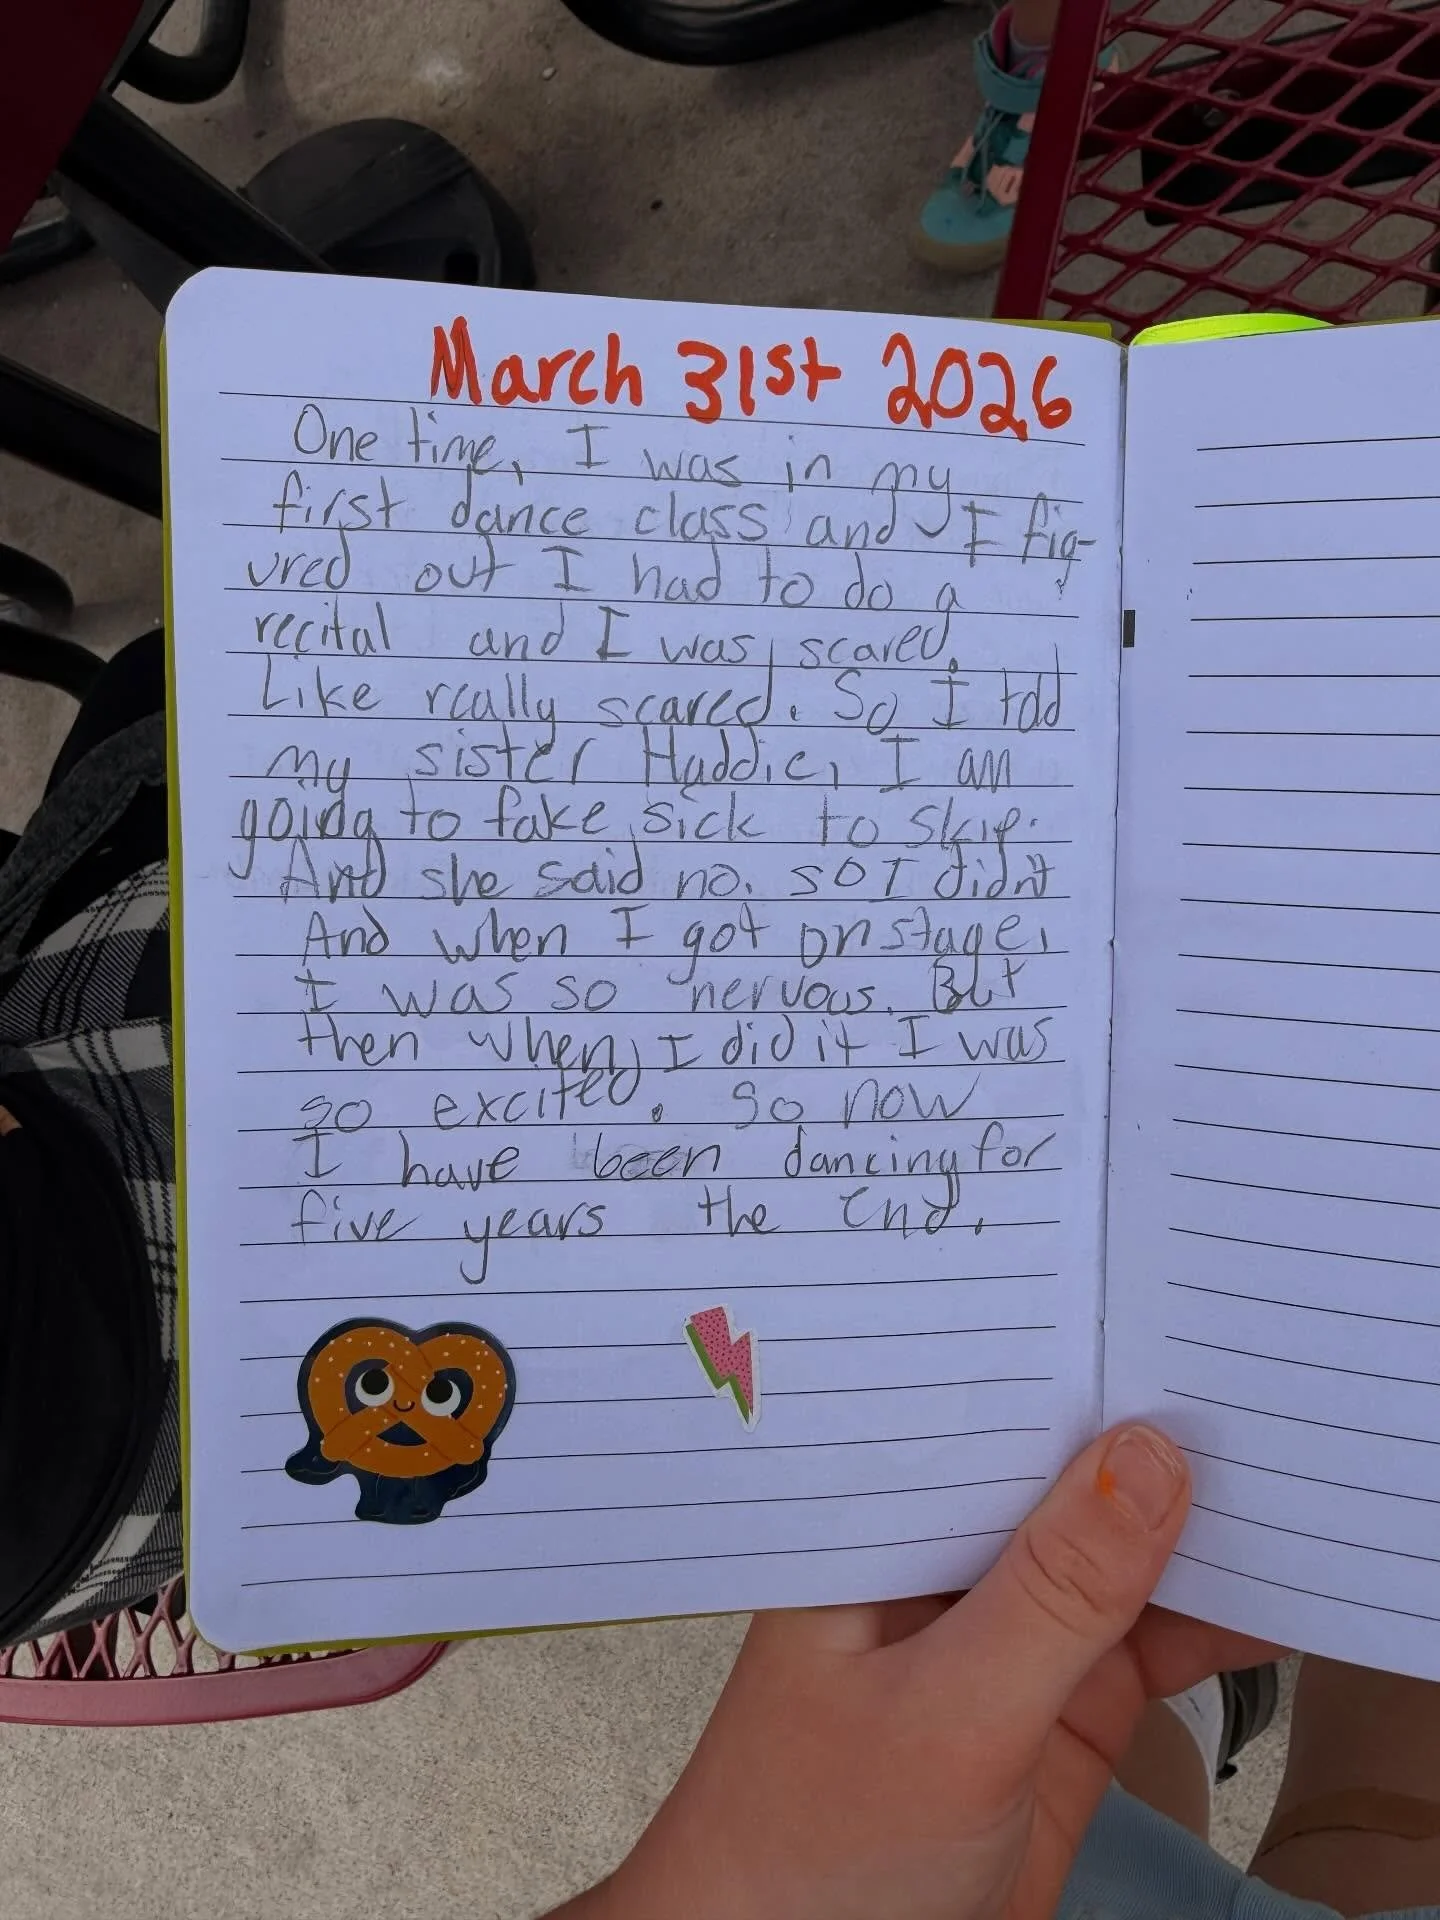 March 31st 2026
One time, I was in my
first dance class and I fig-
ured out I had to do a
recital and I was scared.
Like really scared. So I told
my sister Haddie, I am
going to fake sick to skip.
And she said no. so I didn't
And when I got on stage,
I was so nervous. But
then when I did it I was
so excited. So now
I have been dancing for
five years the End.